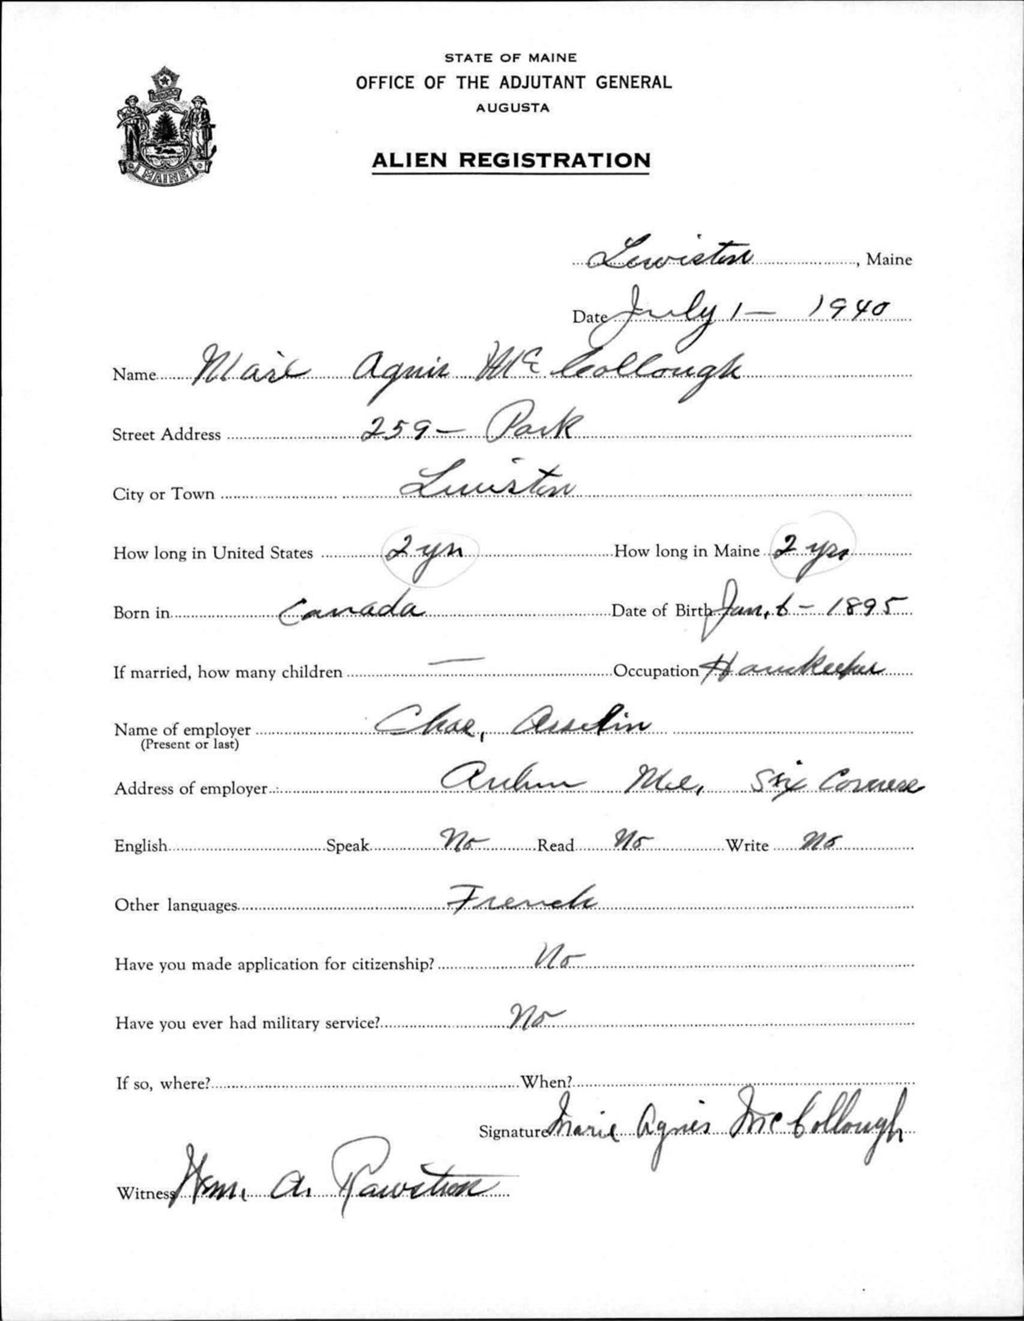 STATE OF MAINE
OFFICE OF THE ADJUTANT GENERAL
AUGUSTA
ALIEN REGISTRATION
MAINE
Lewiston, Maine
Date July 1 - 1940
Name Marie Agnis McCollough
Street Address 259 - Park
City or Town Lewiston
How long in United States 2 yrs How long in Maine 2 yrs
Born in Canada Date of Birth Jan. 6 - 1895
If married, how many children — Occupation Housekeeper
Name of employer Chas. Asselin
(Present or last)
Address of employer Auburn Me. Six Corners
English Speak No Read No Write No
Other languages French
Have you made application for citizenship? No
Have you ever had military service? No
If so, where? When?
Signature Marie Agnes McCollough
Witness Wm. A. Rawstron